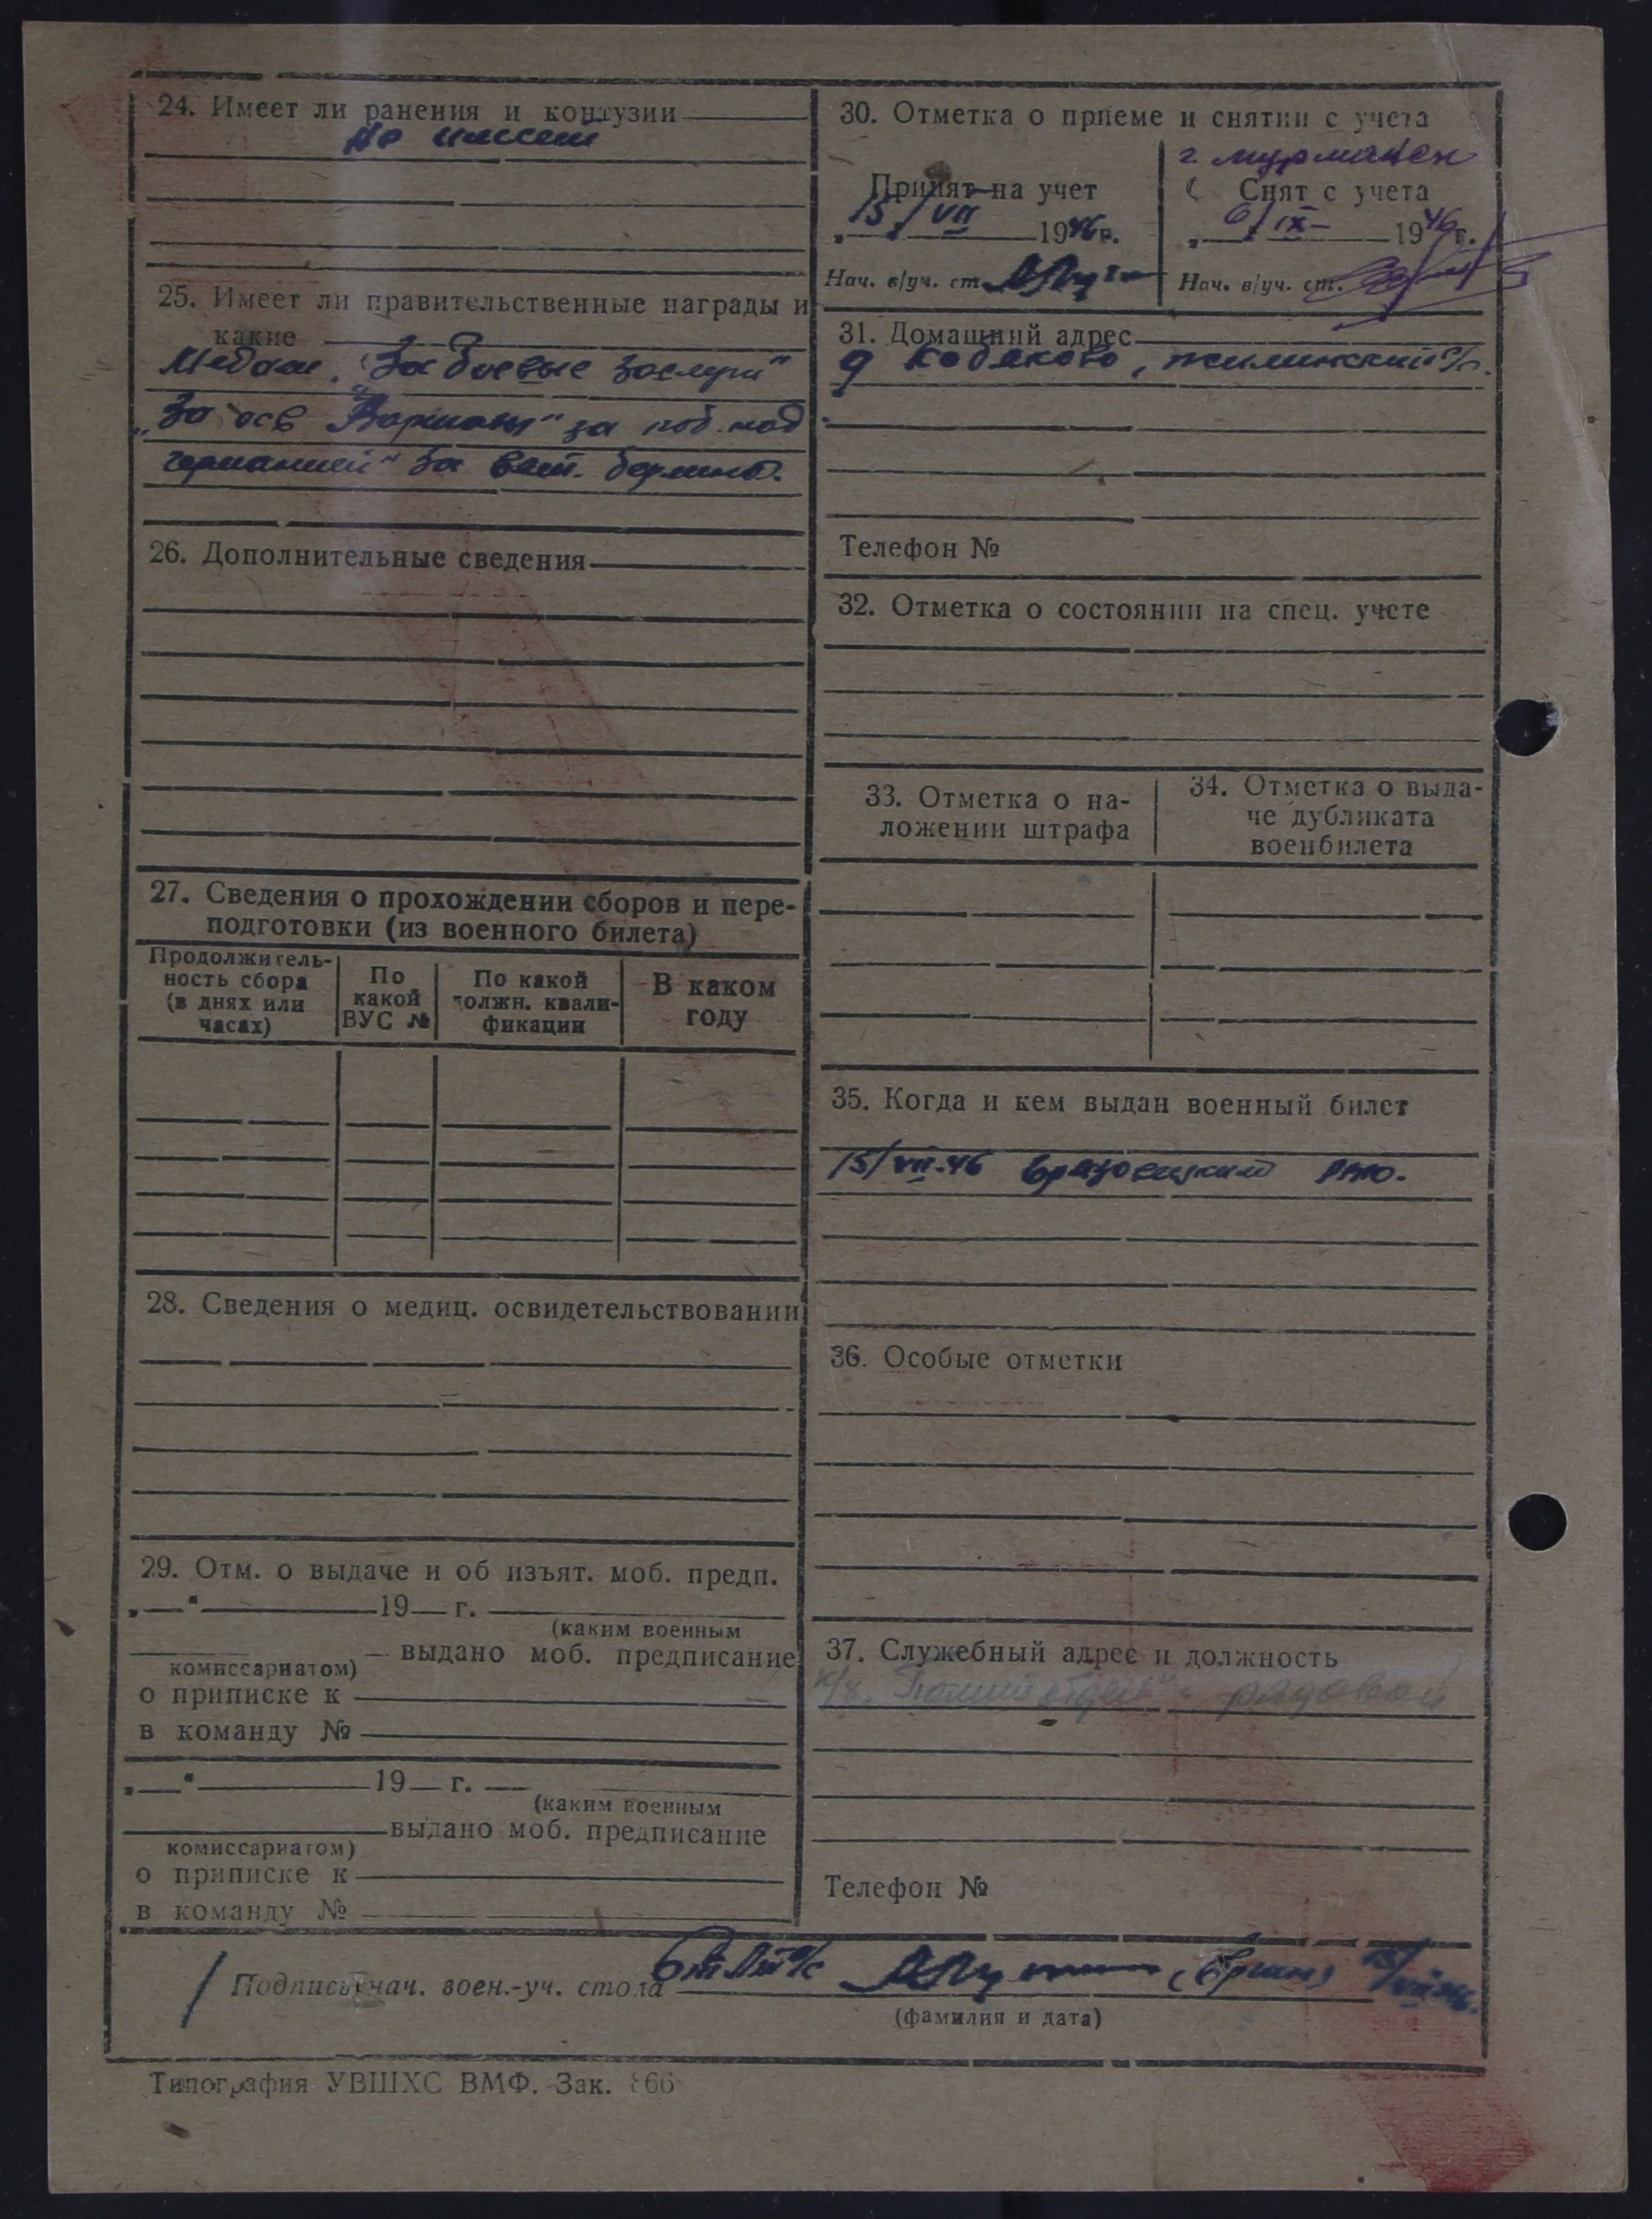 24. Имеет ли ранения и контузии
не имеет
25. Имеет ли правительственные награды и
какие
Медаль „За боевые заслуги"
„За осв Варшавы" за поб. над
германией" За взят. берлина.
26. Дополнительные сведения
27. Сведения о прохождении сборов и пере-
подготовки (из военного билета)
Продолжитель-
ность сбора
(в днях или
часах)
По
какой
ВУС №
По какой
должн. квали-
фикации
В каком
году
28. Сведения о медиц. освидетельствовании
29. Отм. о выдаче и об изъят. моб. предп.
„ “ 19 г.
(каким военным
выдано моб. предписание
комиссариатом)
о приписке к
в команду №
„ “ 19 г.
(каким военным
выдано моб. предписание
комиссариатом)
о приписке к
в команду №
30. Отметка о приеме и снятии с учета
г мурманск
Принят на учет
15/VII 1946г.
Нач. в/уч. ст.
Снят с учета
6/IX 1946г.
Нач. в/уч. ст.
31. Домашний адрес
д , жилинский с/с.
Телефон №
32. Отметка о состоянии на спец. учете
33. Отметка о на-
ложении штрафа
34. Отметка о выда-
че дубликата
военбилета
35. Когда и кем выдан военный билет
15/VII-46 РВК.
36. Особые отметки
37. Служебный адрес и должность
рядовой
Телефон №
Подпись нач. воен.-уч. стола
(фамилия и дата)
Типография УВШХС ВМФ. Зак. 866